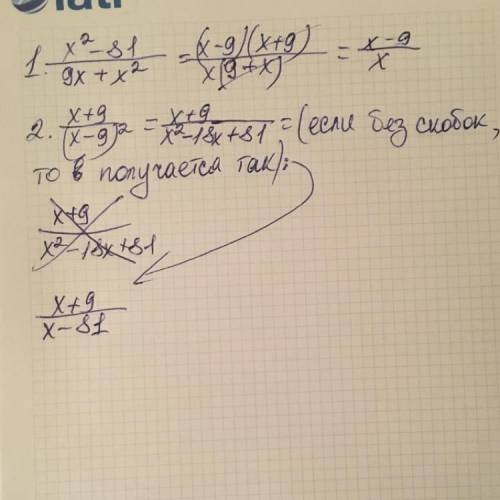 1. (x² - 81)/(9x + x²) = ((x-9)(x+9))/(x(9+x)) = (x-9)/x
2. (x+9)/(x-9)² = (x+9)/(x²-18x+81) = (если без скобок,
то в получается так):
(x+9)/(x²-18x+81)
(x+9)/(x-81)